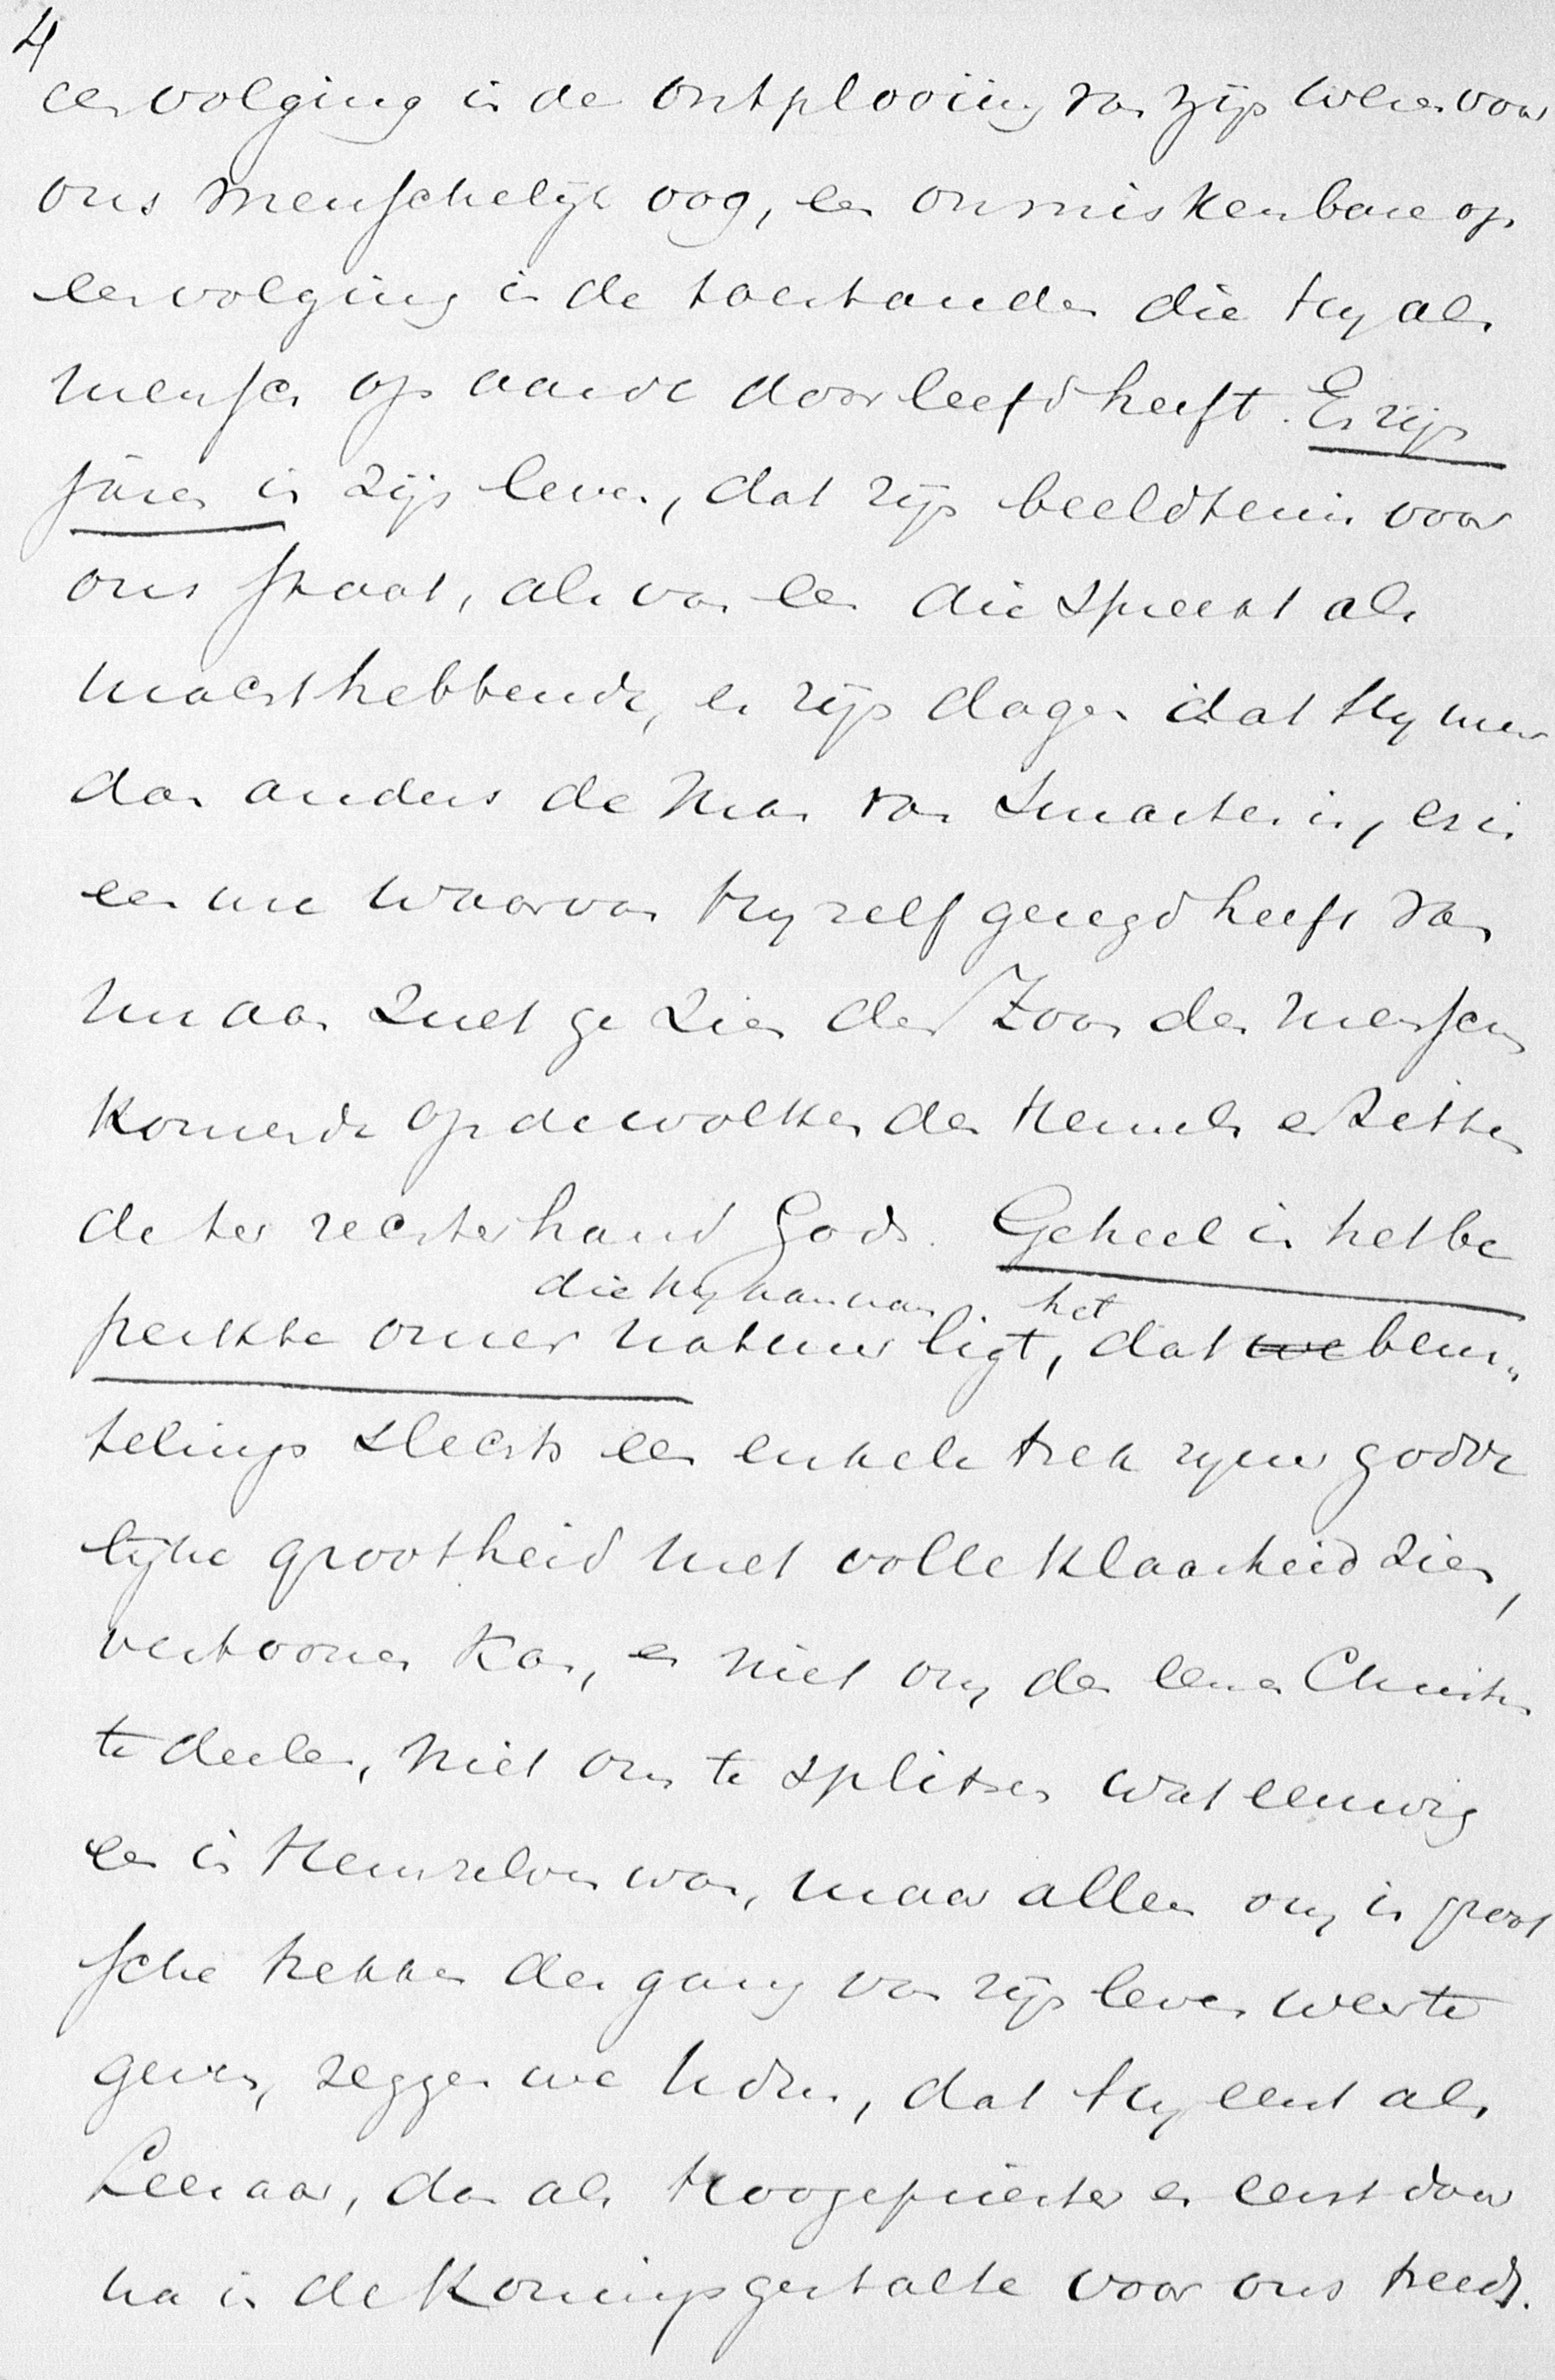 4
eenvolging in de ontplooiing van zijn wezen voor
ons menschelijk oog, een onmiskenbare op
eenvolging in de toestanden die Hy als
mensch op aarde doorleefd heeft. Er zijn
jaren in zijn leven, dat zijn beeldtenis voor
ons staat, als van een die spreekt als
machthebbende, er zijn dagen dat Hy meer
dan anders de Man van Smarten is, er is
een ure waarvan Hy zelf getuigd heeft van
nu aan zult ge zien den Zoon des menschen
komende op de wolken des Hemels en zitten
de ter rechterhand Gods. Geheel in het be
die Hy aannam het
perkte onzer natuur ligt, dat we beur„
telings slechts een enkele trek zyner godde
lyke grootheid met volle klaarheid zien,
vertoonen kan, en niet om den eenen Christus
te deelen, niet om te splitsen wat eeuwig
een in Hemzelven was, maar alleen om in groot
sche trekken den gang van zijn leven weer te
geven, zeggen we tidus, dat Hy eerst als
Leeraar, dan als Hoogepriester en eerst daar
na in de Koningsgestalte voor ons treedt.